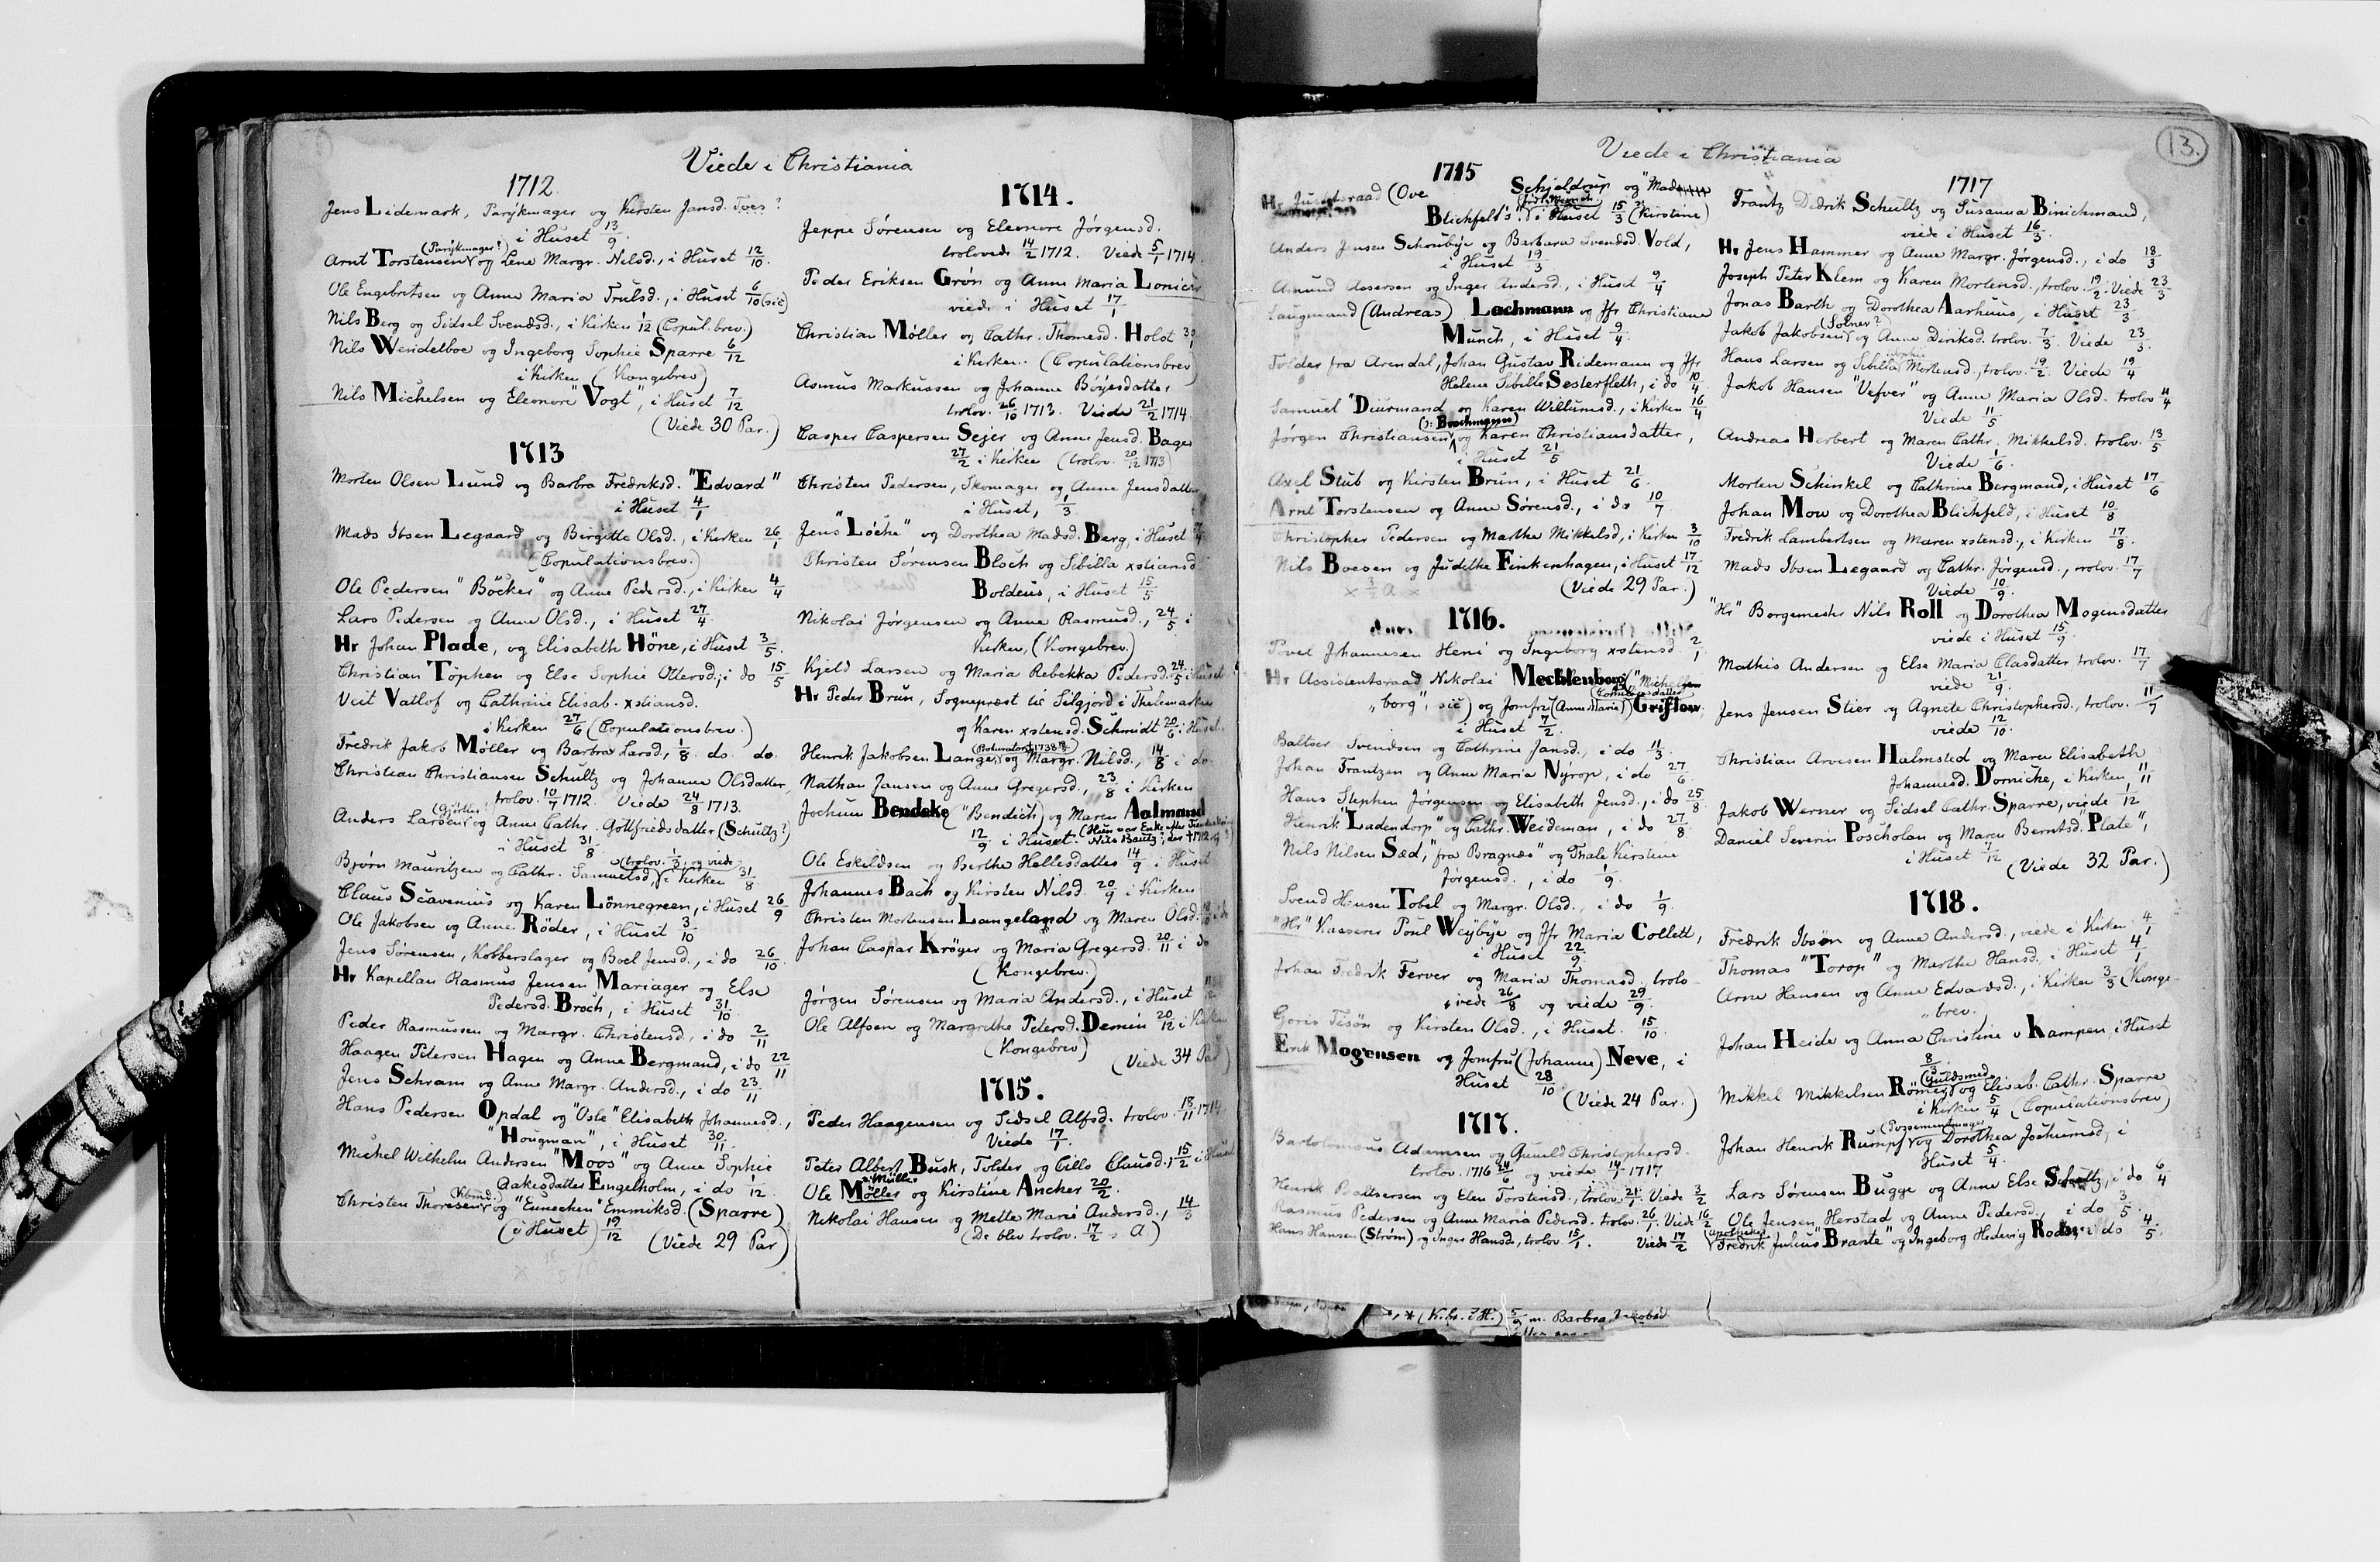 Viede i Christiania
1712.
Jens Lidemark, Parÿkmager og Kirsten Jansd. Toes?
i Huset 13/9.
(Parÿkmager?)
Arnt Torstensen og Lene Margr. Nilsd., i Huset 12/10.
Ole Engebretsen og Anne Maria Trulsd., i Huset 6/10 (sic)
Nils Berg og Sidsel Svendsd., i Kirken 1/12 (Copul.brev.)
Nils Wendelboe og Ingeborg Sophie Sparre 6/12
i Kirken (Kongebrev)
Nils Michelsen og Eleonore "Vogt", i Huset 7/12
(Viede 30 Par.)
1713
Morten Olsen Lund og Barbra Fredriksd. "Edvard"
i Huset 4/1
Mads Ibsen Legaard og Birgitte Olsd., i Kirken 26/1
(Copulationsbrev.)
Ole Pedersen "Böcker" og Anne Pedersd., i Kirken 4/4
Lars Pedersen og Anne Olsd., i Huset 27/4.
Hr Johan Plade, og Elisabeth Höne, i Huset 3/5.
Christian Töphen og Else Sophie Ottersd., i do 15/5
Veit Vatlof og Cathrine Elisab. xstiansd.
i Kirken 27/6 (Copulationsbrev.)
Fredrik Jakob Möller og Barbra Larsd., 1/8 do do.
Christian Christiansen Schultz og Johanne Olsdatter,
trolov. 10/7 1712. Viede 24/8 1713.
Anders Larsen og Anne Cathr. Gottfriedsdatter (Schultz?)
i Huset 31/8
(trolov. 1/3, og viede
Bjørn Mauritzen og Cathr. Samuelsd., i Kirken 31/8
Claus Scavenius og Karen Lönnegreen, i Huset 26/9
Ole Jakobsen og Anne Röder, i Huset 3/10
Jens Sörensen, Kobberslager og Boel Jensd., i do 26/10.
Hr Kapellan Rasmus Jensen Mariager og Else
Pedersd. Broch, i Huset 31/10.
Peder Rasmussen og Margr. Christensd., i do 2/11
Haagen Petersen Hagen og Anne Bergmand, i do 22/11
Jens Schram og Anne Margr. Andersd., i do 23/11
Hans Pedersen Opdal og "Osle" Elisabeth Johannesd.,
"Hougman", i Huset 30/11.
Michel Wilhelm Andersen "Moos" og Anne Sophie
Aakesdatter Engelholm, i do 1/12
Christen Thoresen og "Eunichen" Emmiksd. (Sparre)
(i Huset) 19/12 (Viede 29 Par)
1714.
Jeppe Sørensen og Eleonore Jørgensd.
trolovede 14/2 1712. Viede 5/1 1714
Peder Eriksen Grön og Anne Maria Lonicer
viede i Huset 17/1
Christian Möller og Cathr. Thomesd. Holst
i Kirken. (Copulationsbrev)
Asmus Markussen og Johanne Böÿesdatter
trolov. 26/10 1713. Viede 21/2 1714.
Casper Caspersen Sejer og Anne Jensd. Bager
27/2 i Kirken (trolov. 20/12 1713)
Christen Pedersen, Skomager og Anne Jensdatter
i Huset, 1/3
Jens "Löche" og Dorothea Madsd. Berg, i Huset
Christen Sörensen Bloch og Sibilla xstiansd
Boldeus, i Huset 15/5
Nikolai Jørgensen og Anne Rasmusd., 24/5 i
Kirken, (Kongebrev.)
Kjeld Larsen og Maria Rebekka Pedersd. 24/5 i Huset
Hr Peder Brun, Sognepræst til Silgjord i Thelemarken
og Karen xstensd. Schmidt 20/6 i Huset.
Henrik Jakobsen Lange, og Margr. Nilsd., 14/8 i do.
Nathan Jansen og Anne Gregersd., 23/8 i Kirken
Jochum Bendeke ("Bendich") og Maren Aalmand
12/9 i Huset.
Ole Eskildsen og Berthe Hellesdatter 14/9 i Huset
Johannes Bach og Kirsten Nilsd. 20/9 i Kirken
Christen Mortensen Langeland og Maren Olsd.
Johan Caspar Kröger og Maria Gregersd. 20/11 i do
(Kongebrev.)
Jörgen Sörensen og Maria Andersd., i Huset
Ole Alfsen og Margrethe Petersd. Demin 20/12 i Kirken
(Kongebrev)
(Viede 34 Par)
1715.
Peder Haagensen og Sidsel Alfsd. trolov. 18/11 1714.
Viede 17/1.
Peter Albert Busk, Tolder, og Cille Clausd., 15/2 i Huset
Ole Möller og Kirstine Ancher 20/2.
Nikolai Hansen og Mette Marie Andersd., 14/3
(De blev trolov. 17/2 s A.)
Viede i Christiania
13.
1715
Hr Justitsraad (Ove Schjeldrup og "Mad
Blichfeld's" i Huset 15/3 (Kirstine)
Anders Jensen Schouböye og Barbara Svendsd. Vold,
i Huset 19/3
Amund Assersen og Inger Andersd., i Huset 9/4
Laugmand (Andreas) Lachmann og Jfr Christiane
Munch, i Huset 9/4.
Tolder fra Arendal, Johan Gustav Ridemann og Jfr
Helene Sibille Sesterfleth, i do 10/4
Samuel "Diurmand og Karen Willumsd., i Kirken 16/4
(ɔ: Brochmann)
Jörgen Christiansen og Karen Christiansdatter,
i Huset 21/5
Axel Stub og Kirsten Brun, i Huset 21/6.
Arnt Torstensen og Anne Sörensd., i do 10/7
Christopher Pedersen og Marthe Mikkelsd., i Kirken 3/10
Nils Boesen og Judithe Finkenhagen, i Huset 17/12
(Viede 29 Par.)
1716.
Povel Johannesen Heni og Ingeborg xstensd. 2/1
Hr Assistentsraad Nikolai Mechlenborg "Michel
"borg", sic) og Jomfru (Anne Marie) Griflow,
i Huset 7/2.
Baltser Svendsen og Cathrine Jansd., i do 11/3.
Johan Frantzen og Anne Maria Nÿrop, i do 27/6.
Hans Stephen Jørgensen og Elisabeth Jensd., i do 25/8.
Henrik "Ladendorp" og Cathr. Weideman, i do 27/8.
Nils Nilsen Sæd, "fra Bragnæs" og Thale Kirstine
Jørgensd., i do 1/9.
Svend Hansen Tobel og Margr. Olsd., i do 1/9.
"Hr" Kasserer Poul Weÿbÿe og Jfr Maria Collett,
i Huset 22/9.
Johan Fredrik Ferver og Maria Thomasd. trolo-
vede 26/8 og viede 29/9.
Goris Tisön og Kirsten Olsd., i Huset. 15/10.
Erik Mogensen og Jomfru (Johanne) Neve, i
Huset 28/10
(Viede 24 Par.)
1717.
Bartolomæus Adamsen og Gunild Christophersd.
trolov. 1716 24/6 og viede 14/1 1717
Henrik Baltsersen og Elen Torstensd., trolov. 21/1. Viede 3/2
Rasmus Pedersen og Anne Maria Pedersd. trolov. 26/1. Viede 16/2
Hans Hansen (Strøm) og Inger Hansd., trolov. 15/1. Viede 17/2
1717
Frantz Didrik Schultz og Susanna Binichmand,
viede i Huset 16/3.
Hr Jens Hammer og Anne Margr. Jörgensd., i do 18/3
Joseph Peter Klem og Karen Mortensd., trolov. 19/2. Viede 23/3
Jonas Barth og Dorothea Aarhuus, i Huset 23/3
Jakob Jakobsen og Anne Diriksd. trolov. 7/3. Viede 23/3.
Hans Larsen og Sibilla Mortensd., trolov. 19/2. Viede 19/4
Jakob Hansen "Vefver" og Anne Maria Olsd. trolov 11/4
Viede 11/5.
Andreas Herbert og Maren Cathr. Mikkelsd. trolov. 13/5
Viede 1/6.
Morten Schinkel og Cathrine Bergmand, i Huset 17/6
Johan Mow og Dorothea Blichfeld, i Huset 10/8
Fredrik Lambertsen og Maren xstensd., i Kirken 17/8.
Mads Ibsen Legaard og Cathr. Jörgensd., trolov. 17/7
Viede 10/9.
"Hr" Borgemester Nils Roll og Dorothea Mogensdatter
viede i Huset 15/9.
Mathis Andersen og Else Maria Clasdatter, trolov. 17/7
viede 21/9.
Jens Jensen Stier og Agnete Christophersd., trolov. 11/7
viede 12/10.
Christian Arvesen Halmsted og Maren Elisabeth
Johannesd. Dorniche, i Kirken, 11/11
Jakob Werner og Sidsel Cathr. Sparre, viede 1/12
Daniel Severin Poscholan og Maren Berntsd. "Plate",
i Huset 7/12 (Viede 32 Par.)
1718.
Fredrik Ibsön og Anne Andersd., viede i Kirken 4/1
Thomas "Torop" og Marthe Hansd., i Huset 4/1
Arne Hansen og Anne Edvardsd., i Kirken 3/3 (Konge-
brev.)
Johan Heide og Anna Christine v Kampen, i Huset
8/3.
(Guldsmed)
Mikkel Mikkelsen Römer, og Elisab. Cathr. Sparre
i Kirken 5/4 (Copulationsbrev)
(Possementmager)
Johan Henrik Rumpf, og Dorothea Jochumsd., i
Huset 5/4.
Lars Sörensen Bugge og Anne Else Schultz, i do 6/4
Ole Jensen Herstad og Anne Pedersd., i do 3/5.
(Apotheker)
Fredrik Julius "Brante" og Ingeborg Hedevig Rodbær i do 4/5.
*(K.b. i H.) 5/9 m. Barbra Jacobsd